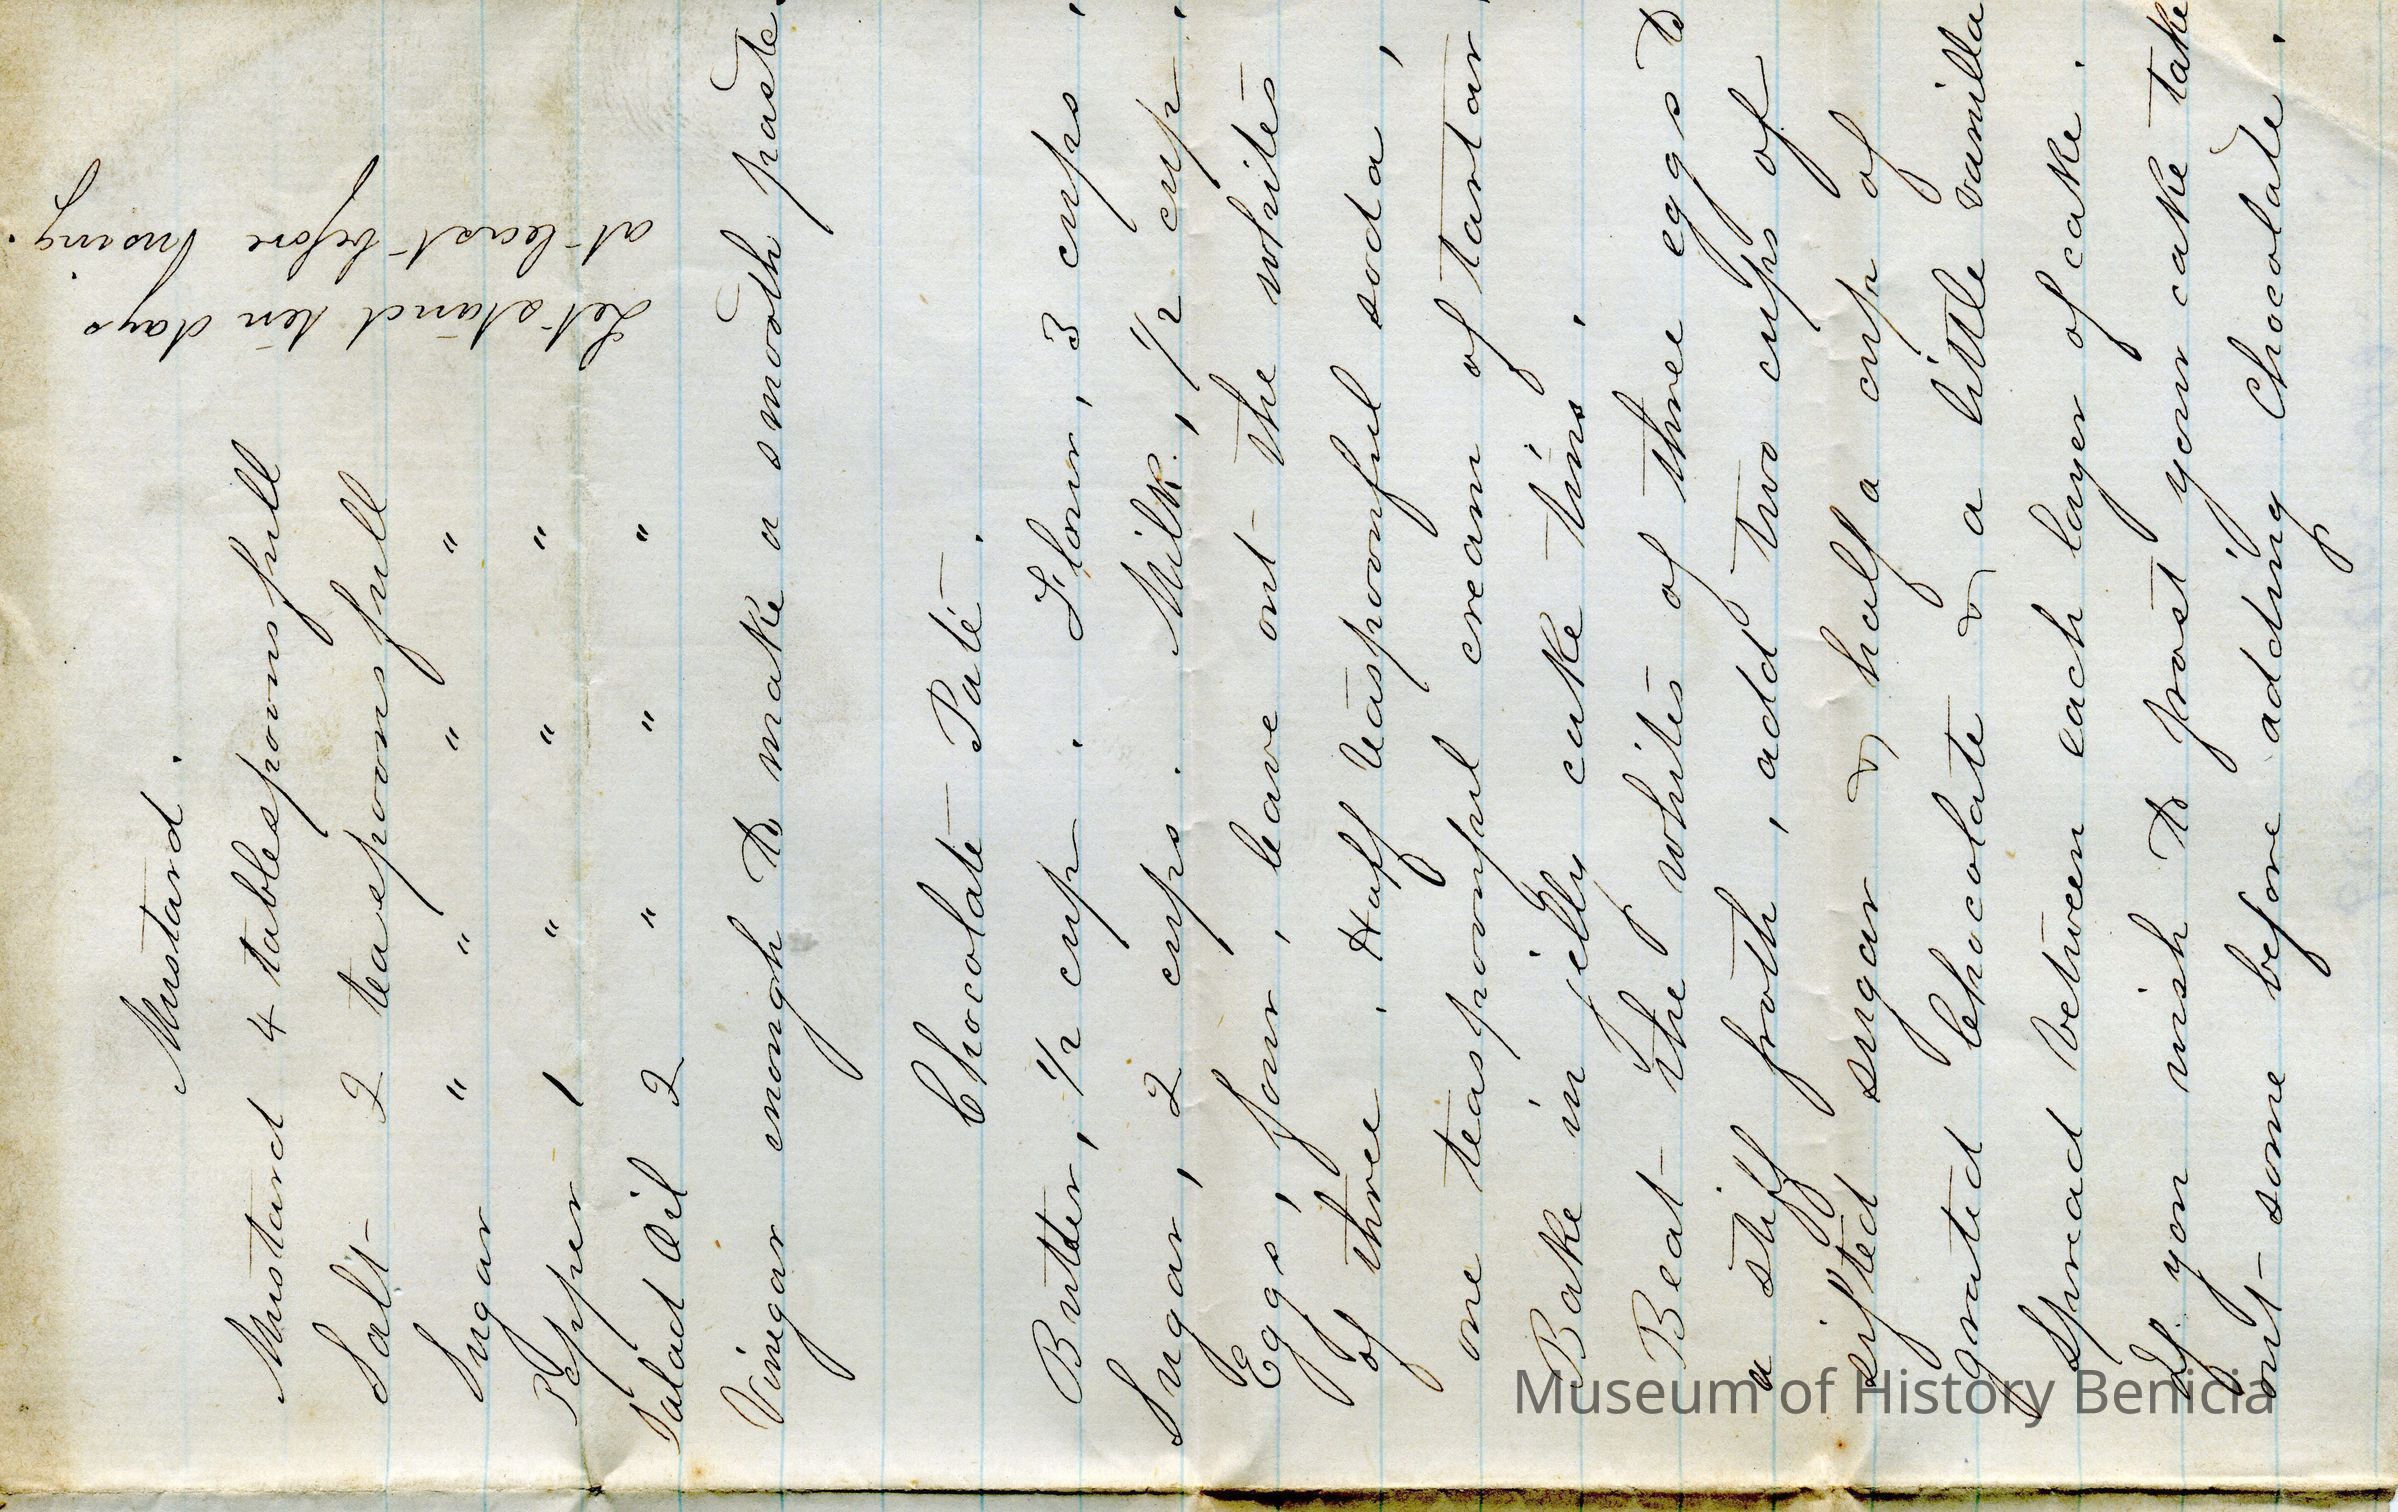 Mustard.
Mustard 4 tablespoonsfull
Salt 2 teaspoonsfull
Sugar " " " "
Pepper 1 " " "
Salad Oil 2 " " "
Let stand ten days
at least before using.
Vinegar enough to make a smooth paste.
Chocolate Paté.
Butter, 1/2 cup. Flour, 3 cups.
Sugar, 2 cups. Milk, 1/2 cup.
Eggs, four, leave out the whites
of three. Half teaspoonful soda,
one teaspoonful cream of tartar,
Bake in jelly cake tins.
Beat the whites of three eggs to
a stiff froth, add two cups of
sifted sugar & half a cup of
grated Chocolate & a little vanilla
Spread between each layer of cake.
If you wish to frost your cake take
out some before adding Chocolate.
Museum of History Benicia